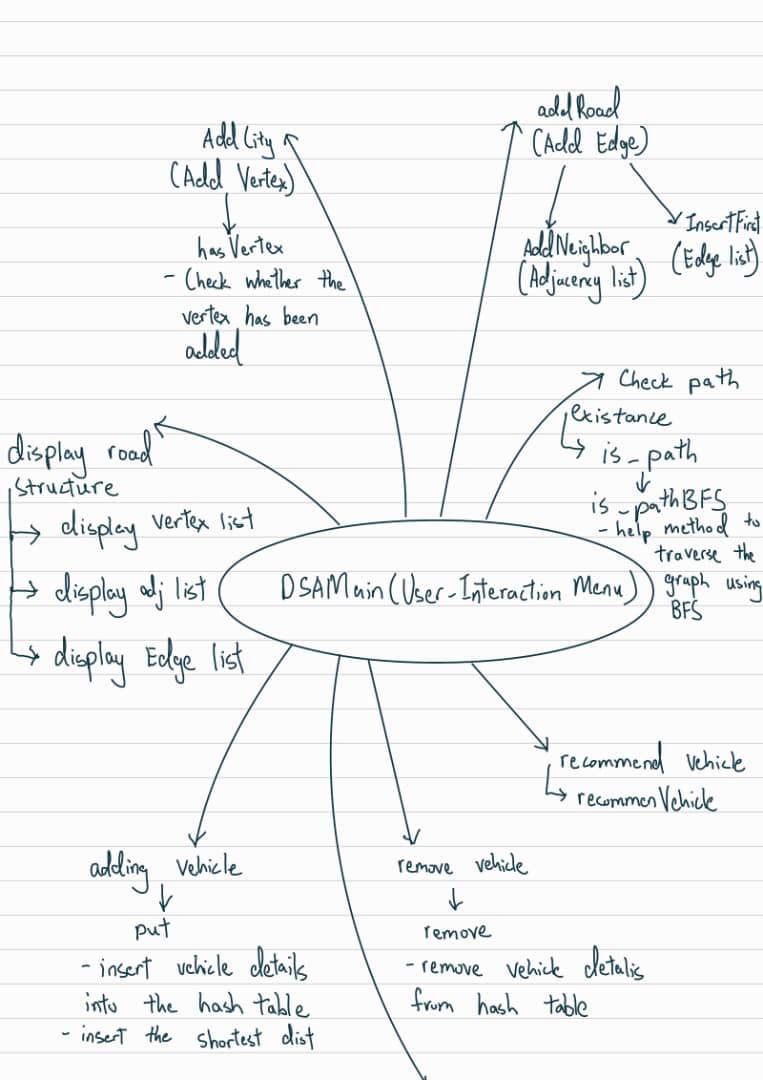 addRoad
(Add Edge)
Add City
(Add Vertex)
InsertFirst
(Edge list)
AddNeighbor
(Adjacency list)
hasVertex
- Check whether the
vertex has been
added
Check path
existance
is_path
is_pathBFS
- help method to
traverse the
graph using
BFS
display road
structure
display vertex list
display adj list
display Edge list
DSAMain(User-Interaction Menu)
recommend vehicle
recommenVehicle
adding vehicle
put
- insert vehicle details
into the hash table
- insert the shortest dist
remove vehicle
remove
- remove vehicle detalis
from hash table